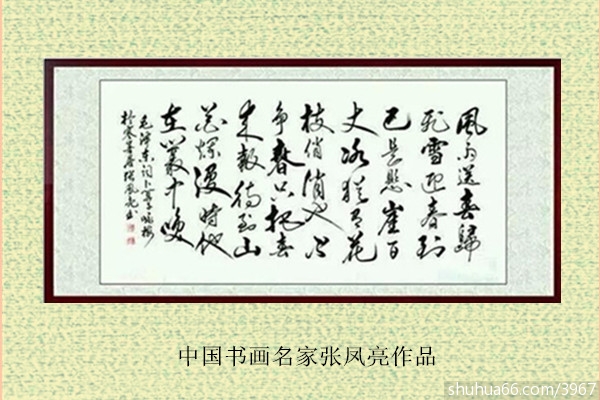 風雨送春歸
飛雪迎春到
已是懸崖百
丈冰猶有花
枝俏俏也不
争春只把春
来報待到山
花爛漫時她
在叢中笑
毛澤東詞卜算子咏梅
張鳳亮書
中国书画名家张凤亮作品
shuhua66.com/3967